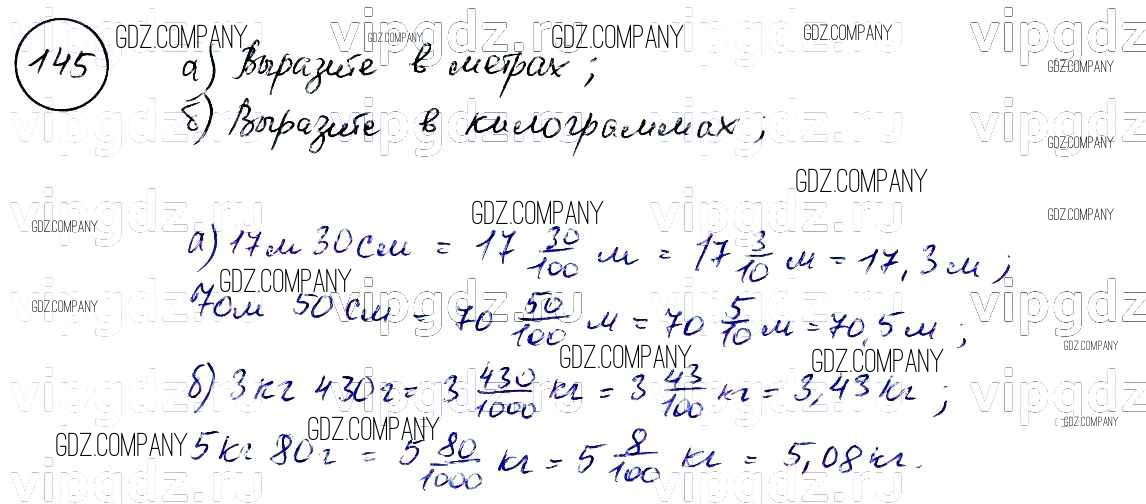 145
а) Выразите в метрах;
б) Выразите в килограммах;
а) 17м 30см = 17 30/100 м = 17 3/10 м = 17,3м;
70м 50см = 70 50/100 м = 70 5/10 м = 70,5м;
б) 3кг 430г = 3 430/1000 кг = 3 43/100 кг = 3,43кг;
5кг 80г = 5 80/1000 кг = 5 8/100 кг = 5,08кг.
GDZ.COMPANY
vipgdz.ru